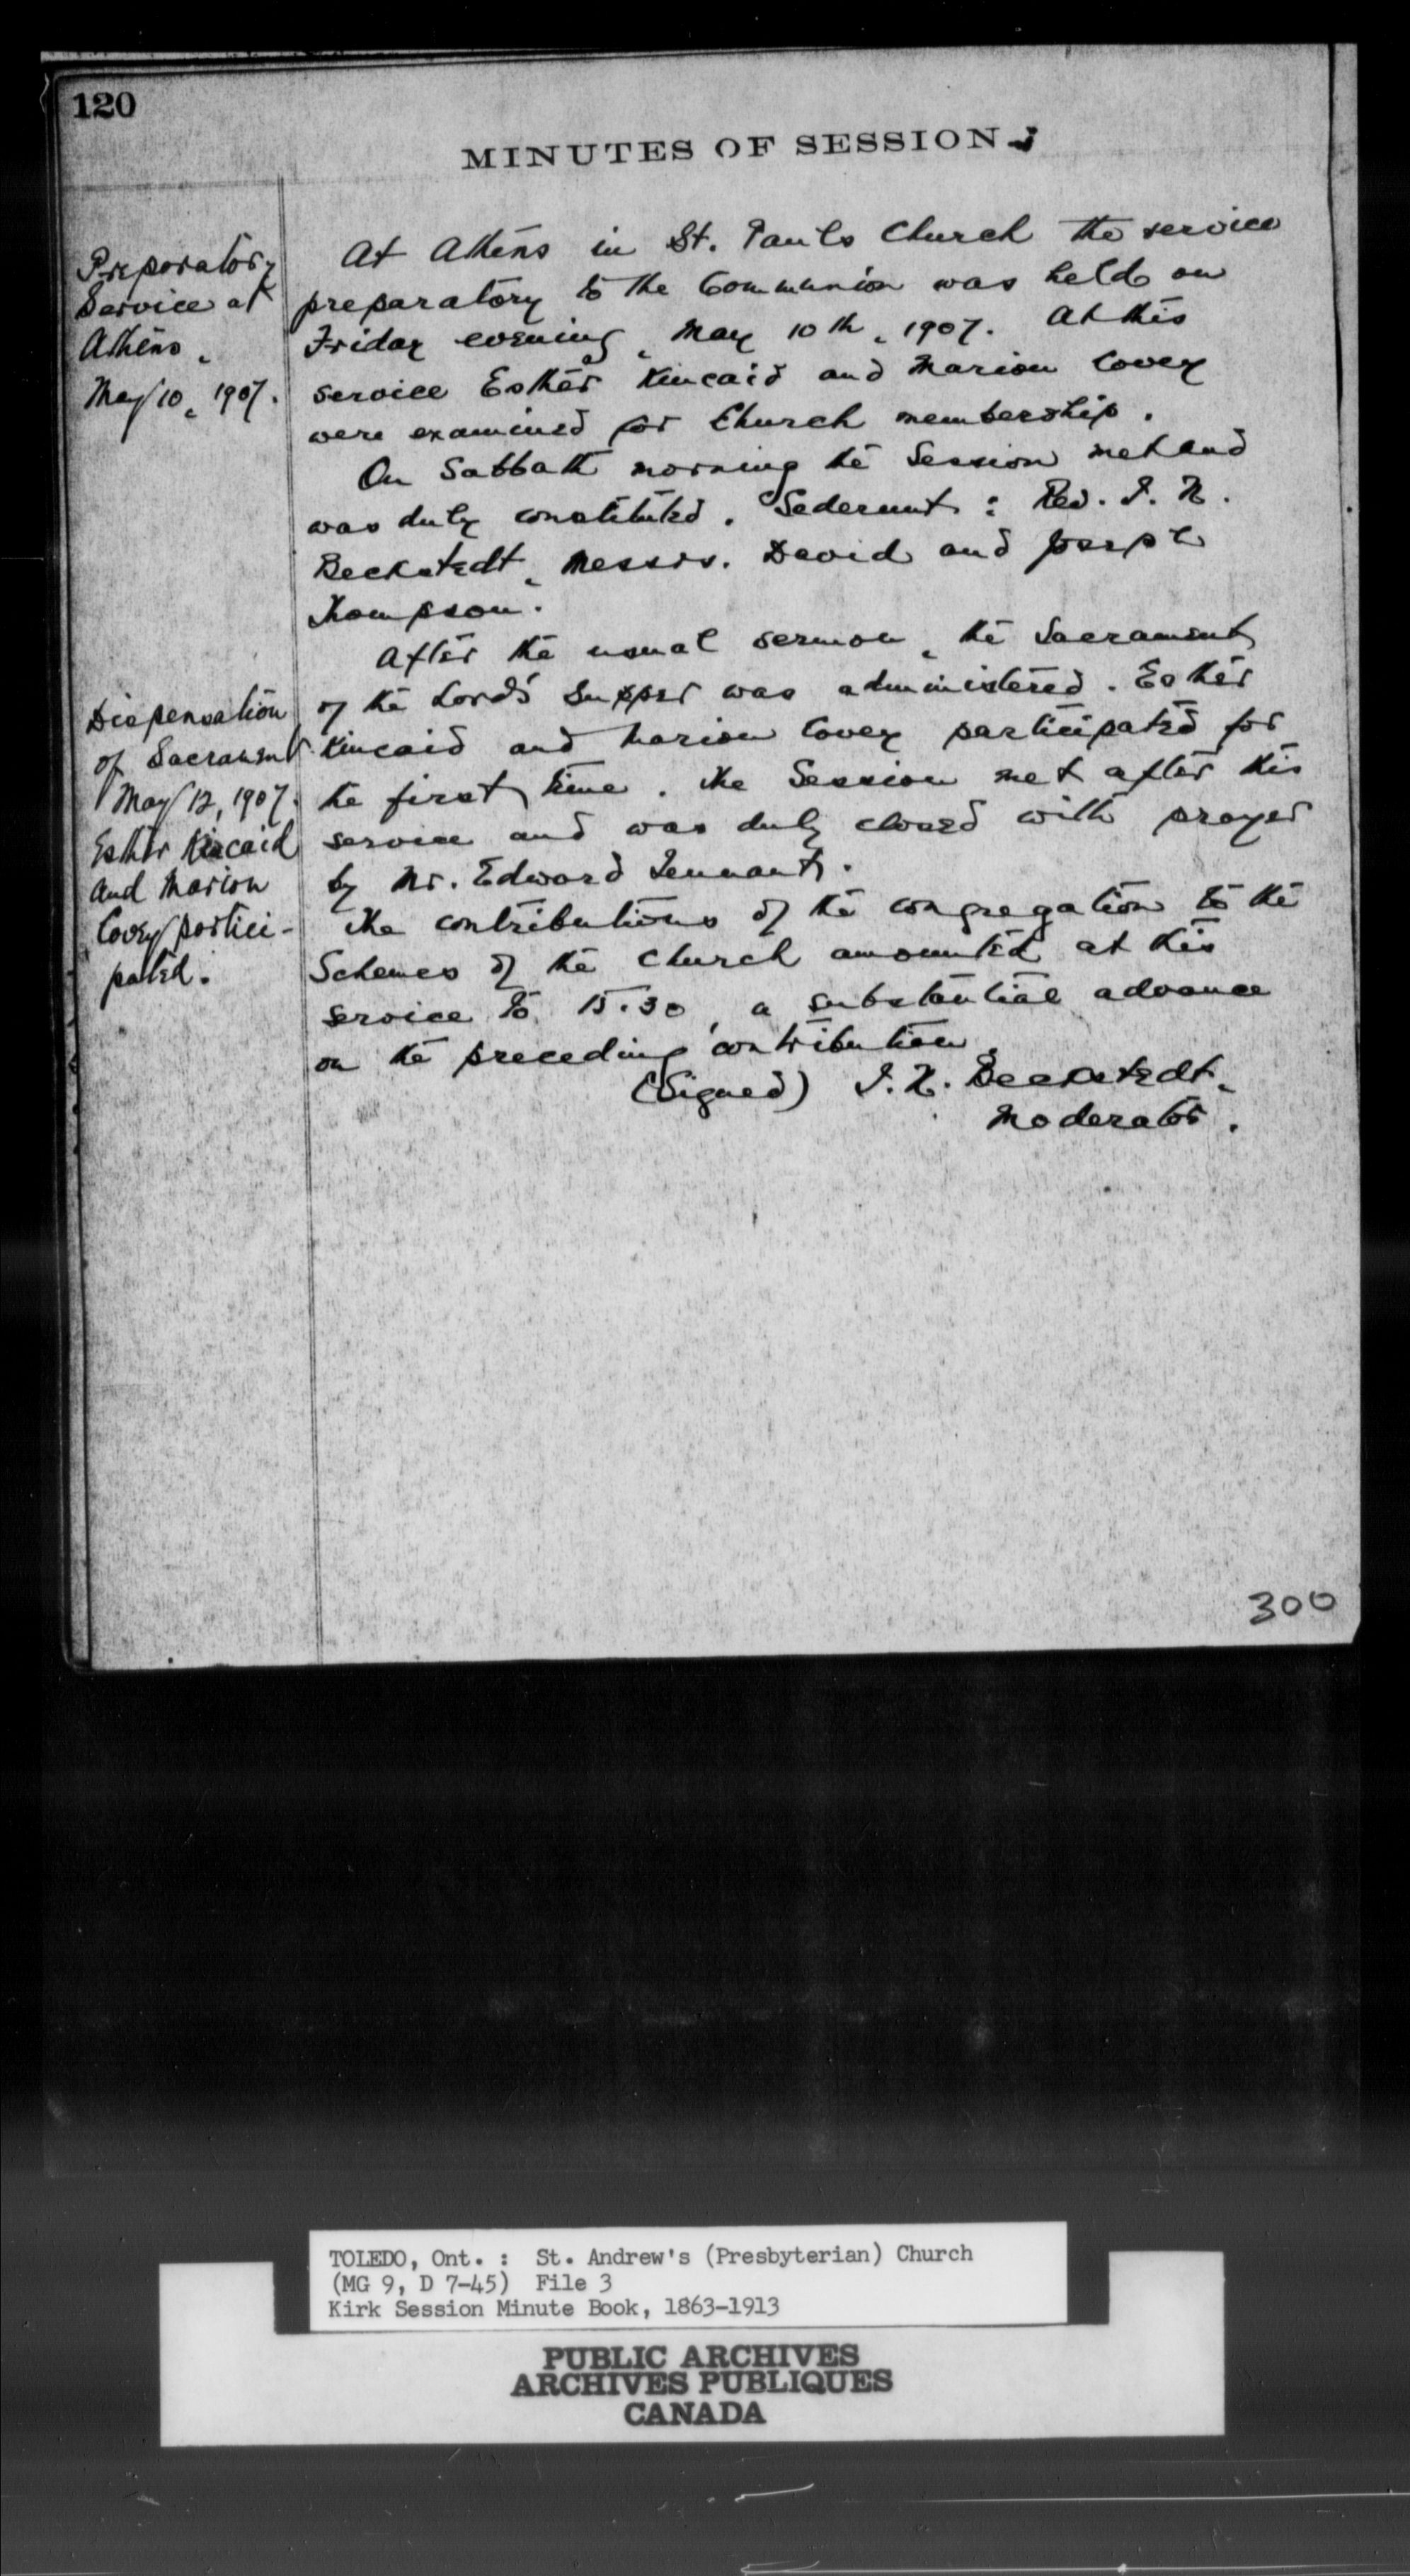 120
MINUTES OF SESSION
Preparatory
Service at
Athens,
May 10, 1907.
At Athens in St. Paul's Church the service
preparatory to the Communion was held on
Friday evening, May 10th, 1907. At this
service Esther Kincaid and Marion Covey
were examined for Church membership.
On Sabbath morning the Session met and
was duly constituted. Sederunt: Rev. I. N.
Beckstedt, Messrs. David and Joseph
Thompson.
After the usual sermon, the Sacrament
of the Lord's Supper was administered. Esther
Kincaid and Marion Covey participated for
the first time. The Session met after this
service and was duly closed with prayer
by Mr. Edward Tennant.
Dispensation
of Sacrament
May 12, 1907.
Esther Kincaid
and Marion
Covey partici-
pated.
The contributions of the congregation to the
Schemes of the Church amounted at this
service to 15.30, a substantial advance
on the preceding contribution.
(Signed) I. N. Beckstedt,
Moderator.
300
TOLEDO, Ont. : St. Andrew's (Presbyterian) Church
(MG 9, D 7-45) File 3
Kirk Session Minute Book, 1863-1913
PUBLIC ARCHIVES
ARCHIVES PUBLIQUES
CANADA